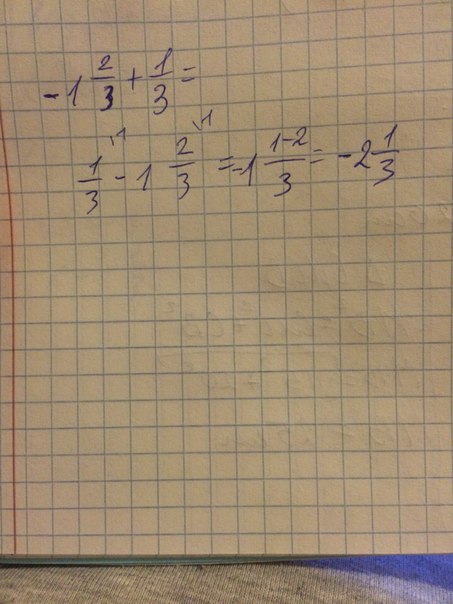 -1 2/3 + 1/3 =
1/3 \1 - 1 2/3 \1 = -1 1-2/3 = -2 1/3